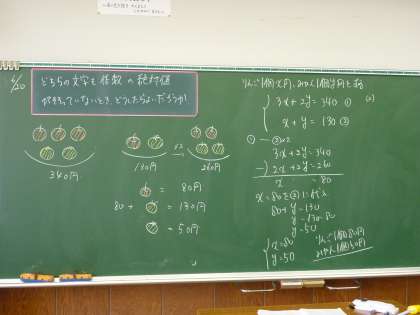 6/20
どちらの文字も係数の絶対値
がそろっていないとき、どうしたらよいだろうか。
340円
130円
×2
260円
= 80円
80 + = 130円
= 50円
りんご1個x円、みかん1個y円とする
3x+2y=340 ①
x+y=130 ②
①-②×2
3x+2y=340
-) 2x+2y=260
x =80
x=80を②に代入
80+y=130
y=130-80
y=50
x=80
y=50
りんご1個80円
みかん1個50円